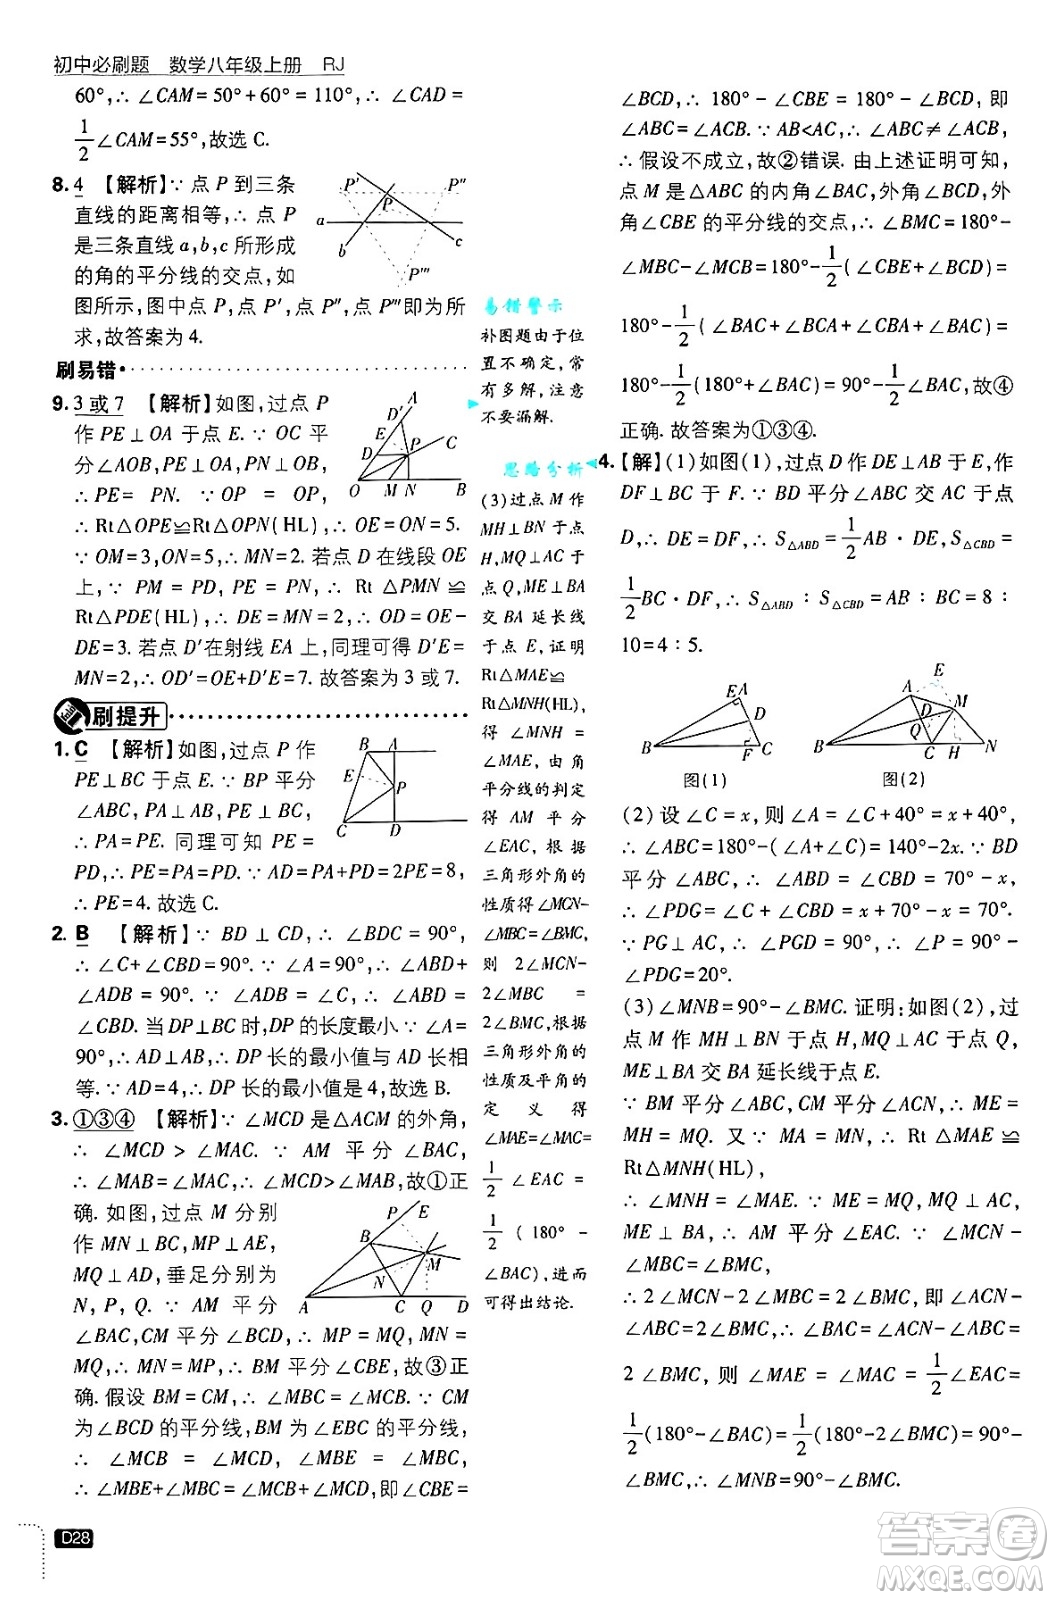 初中必刷题 数学八年级上册 RJ
60°,∴ ∠CAM=50°+60°=110°,∴ ∠CAD=
1/2∠CAM=55°,故选 C.
8. 4 【解析】∵ 点 P 到三条
直线的距离相等,∴ 点 P
是三条直线 a,b,c 所形成
的角的平分线的交点,如
图所示,图中点 P,点 P′,点 P″,点 P‴即为所
求,故答案为 4.
P′ P P″
a
b c
P‴
刷易错
9. 3 或 7 【解析】如图,过点 P
作 PE⊥OA 于点 E. ∵ OC 平
分∠AOB,PN⊥OB,∴ PE=
PN. 在 Rt△OPE 和 Rt△OPN 中,{OP=OP, PE=PN,
∴ Rt△OPE≌Rt△OPN(HL),∴ OE=ON=5.
∵ OM=3,ON=5,∴ MN=2. 若点 D 在线段 OE
上,∵ PM = PD, PE = PN, ∴ Rt △PMN ≌
Rt△PDE(HL),∴ DE=MN=2,∴ OD=OE-
DE=3. 若点 D′在射线 EA 上,同理可求 D′E=
MN=2,∴ OD′=OE+D′E=7. 故答案为 3 或 7.
A D′ E C D P O M N B
刷提升
1. C 【解析】如图,过点 P 作
PE⊥BC 于点 E. ∵ BP 平分
∠ABC,PA⊥AB,PE⊥BC,
∴ PA=PE. 同理可知 PE=
PD,∴ PA=PE=PD. ∵ AD=PA+PD=2PE=8,
∴ PE=4. 故选 C.
B A E P C D
2. B 【解析】∵ BD⊥CD,∴ ∠BDC=90°,
∴ ∠C+∠CBD=90°. ∵ ∠A=90°,∴ ∠ABD+
∠ADB = 90°. ∵ ∠ADB = ∠C, ∴ ∠ABD =
∠CBD. 当 DP⊥BC 时,DP 的长度最小. ∵∠A=
90°,∴ AD=DP,∴ DP 长的最小值与 AD 长相
等. ∵ AD=4,∴ DP 长的最小值是 4,故选 B.
3. ①③④ 【解析】∵ ∠MCD 是△ACM 的外角,
∴ ∠MCD > ∠MAC. ∵ AM 平分 ∠BAC,
∴ ∠MAB=∠MAC,∴ ∠MCD>∠MAB,故①正
确. 如图,过点 M 分别
作 MN⊥BC,MP⊥AE,
MQ⊥AD,垂足分别为
N, P, Q. ∵ AM 平分
∠BAC,CM 平分∠BCD,∴ MP=MQ,MN=
MQ,∴ MN=MP,∴ BM 平分∠CBE,故③正
确. 假设 BM=CM,∴ ∠MBC=∠MCB. ∵ CM
为∠BCD 的平分线,BM 为∠EBC 的平分线,
∴ ∠MCB = ∠MCD, ∠MBC = ∠MBE,
∴ ∠MBE=∠MCD,∴ 180°-∠CBE=180°-
P E B M N A C Q D
易错警示
补图题由于位
置不确定,常
有多解,注意
不要漏解.
思路分析
(3)过点 M 作
MH⊥BN 于点
H,MQ⊥AC 于
点 Q,ME⊥BA
交 BA 延长线
于点 E,证明
Rt△MAE≌
Rt△MNH(HL),
得 ∠MNH =
∠MAE,由角
平分线的判定
得 AM 平分
∠EAC,根据
三角形外角的
性质得∠MCN-
∠MBC=∠BMC,
则 2∠MCN-
2∠MBC =
2∠BMC,根据
三角形外角的
性质及平角的
定义得
∠MAE=∠MAC=
1/2 ∠EAC =
1/2 (180° -
∠BAC),进而
可得出结论.
∠BCD,∴ 180°-∠CBE=180°-∠BCD,即
∠ABC=∠ACB. ∵ AB<AC,∴ ∠ABC≠∠ACB,
∴ 假设不成立,故②错误. 由上述证明可知,
点 M 是△ABC 的内角∠BAC,外角∠BCD,外
角∠CBE 的平分线的交点,∴ ∠BMC=180°-
∠MBC-∠MCB=180°-1/2(∠CBE+∠BCD)=
180°-1/2(∠BAC+∠BCA+∠CBA+∠BAC)=
180°-1/2(180°+∠BAC)=90°-1/2∠BAC,故④
正确. 故答案为①③④.
4. 【解】(1)如图(1),过点 D 作 DE⊥AB 于 E,作
DF⊥BC 于 F. ∵ BD 平分∠ABC 交 AC 于点
D,∴ DE=DF,∴ S△ABD=1/2AB·DE,S△CBD=
1/2BC·DF,∴ S△ABD:S△CBD=AB:BC=8:
10=4:5.
E A D B F C
图(1)
E A D M Q B C H N
图(2)
(2)设∠C=x,则∠A=∠C+40°=x+40°,
∴ ∠ABC=180°-(∠A+∠C)=140°-2x. ∵ BD
平分∠ABC,∴ ∠ABD=∠CBD=70°-x,
∴ ∠PDG=∠C+∠CBD=x+70°-x=70°.
∵ PG⊥AC,∴ ∠PGD=90°,∴ ∠P=90°-
∠PDG=20°.
(3)∠MNB=90°-∠BMC. 证明:如图(2),过
点 M 作 MH⊥BN 于点 H,MQ⊥AC 于点 Q,
ME⊥BA 交 BA 延长线于点 E.
∵ BM 平分∠ABC,CM 平分∠ACN,∴ ME=
MH=MQ. 又∵ MA=MN,∴ Rt△MAE≌
Rt△MNH(HL),
∴ ∠MNH=∠MAE. ∵ ME=MQ,MQ⊥AC,
ME⊥BA,∴ AM 平分∠EAC. ∵ ∠MCN-
∠MBC=∠BMC,
∴ 2∠MCN-2∠MBC=2∠BMC,即∠ACN-
∠ABC=2∠BMC,∴ ∠BAC=∠ACN-∠ABC=
2∠BMC,则∠MAE=∠MAC=1/2∠EAC=
1/2(180°-∠BAC)=1/2(180°-2∠BMC)=90°-
∠BMC,∴ ∠MNB=90°-∠BMC.
D28
答案圈
MXQE.COM